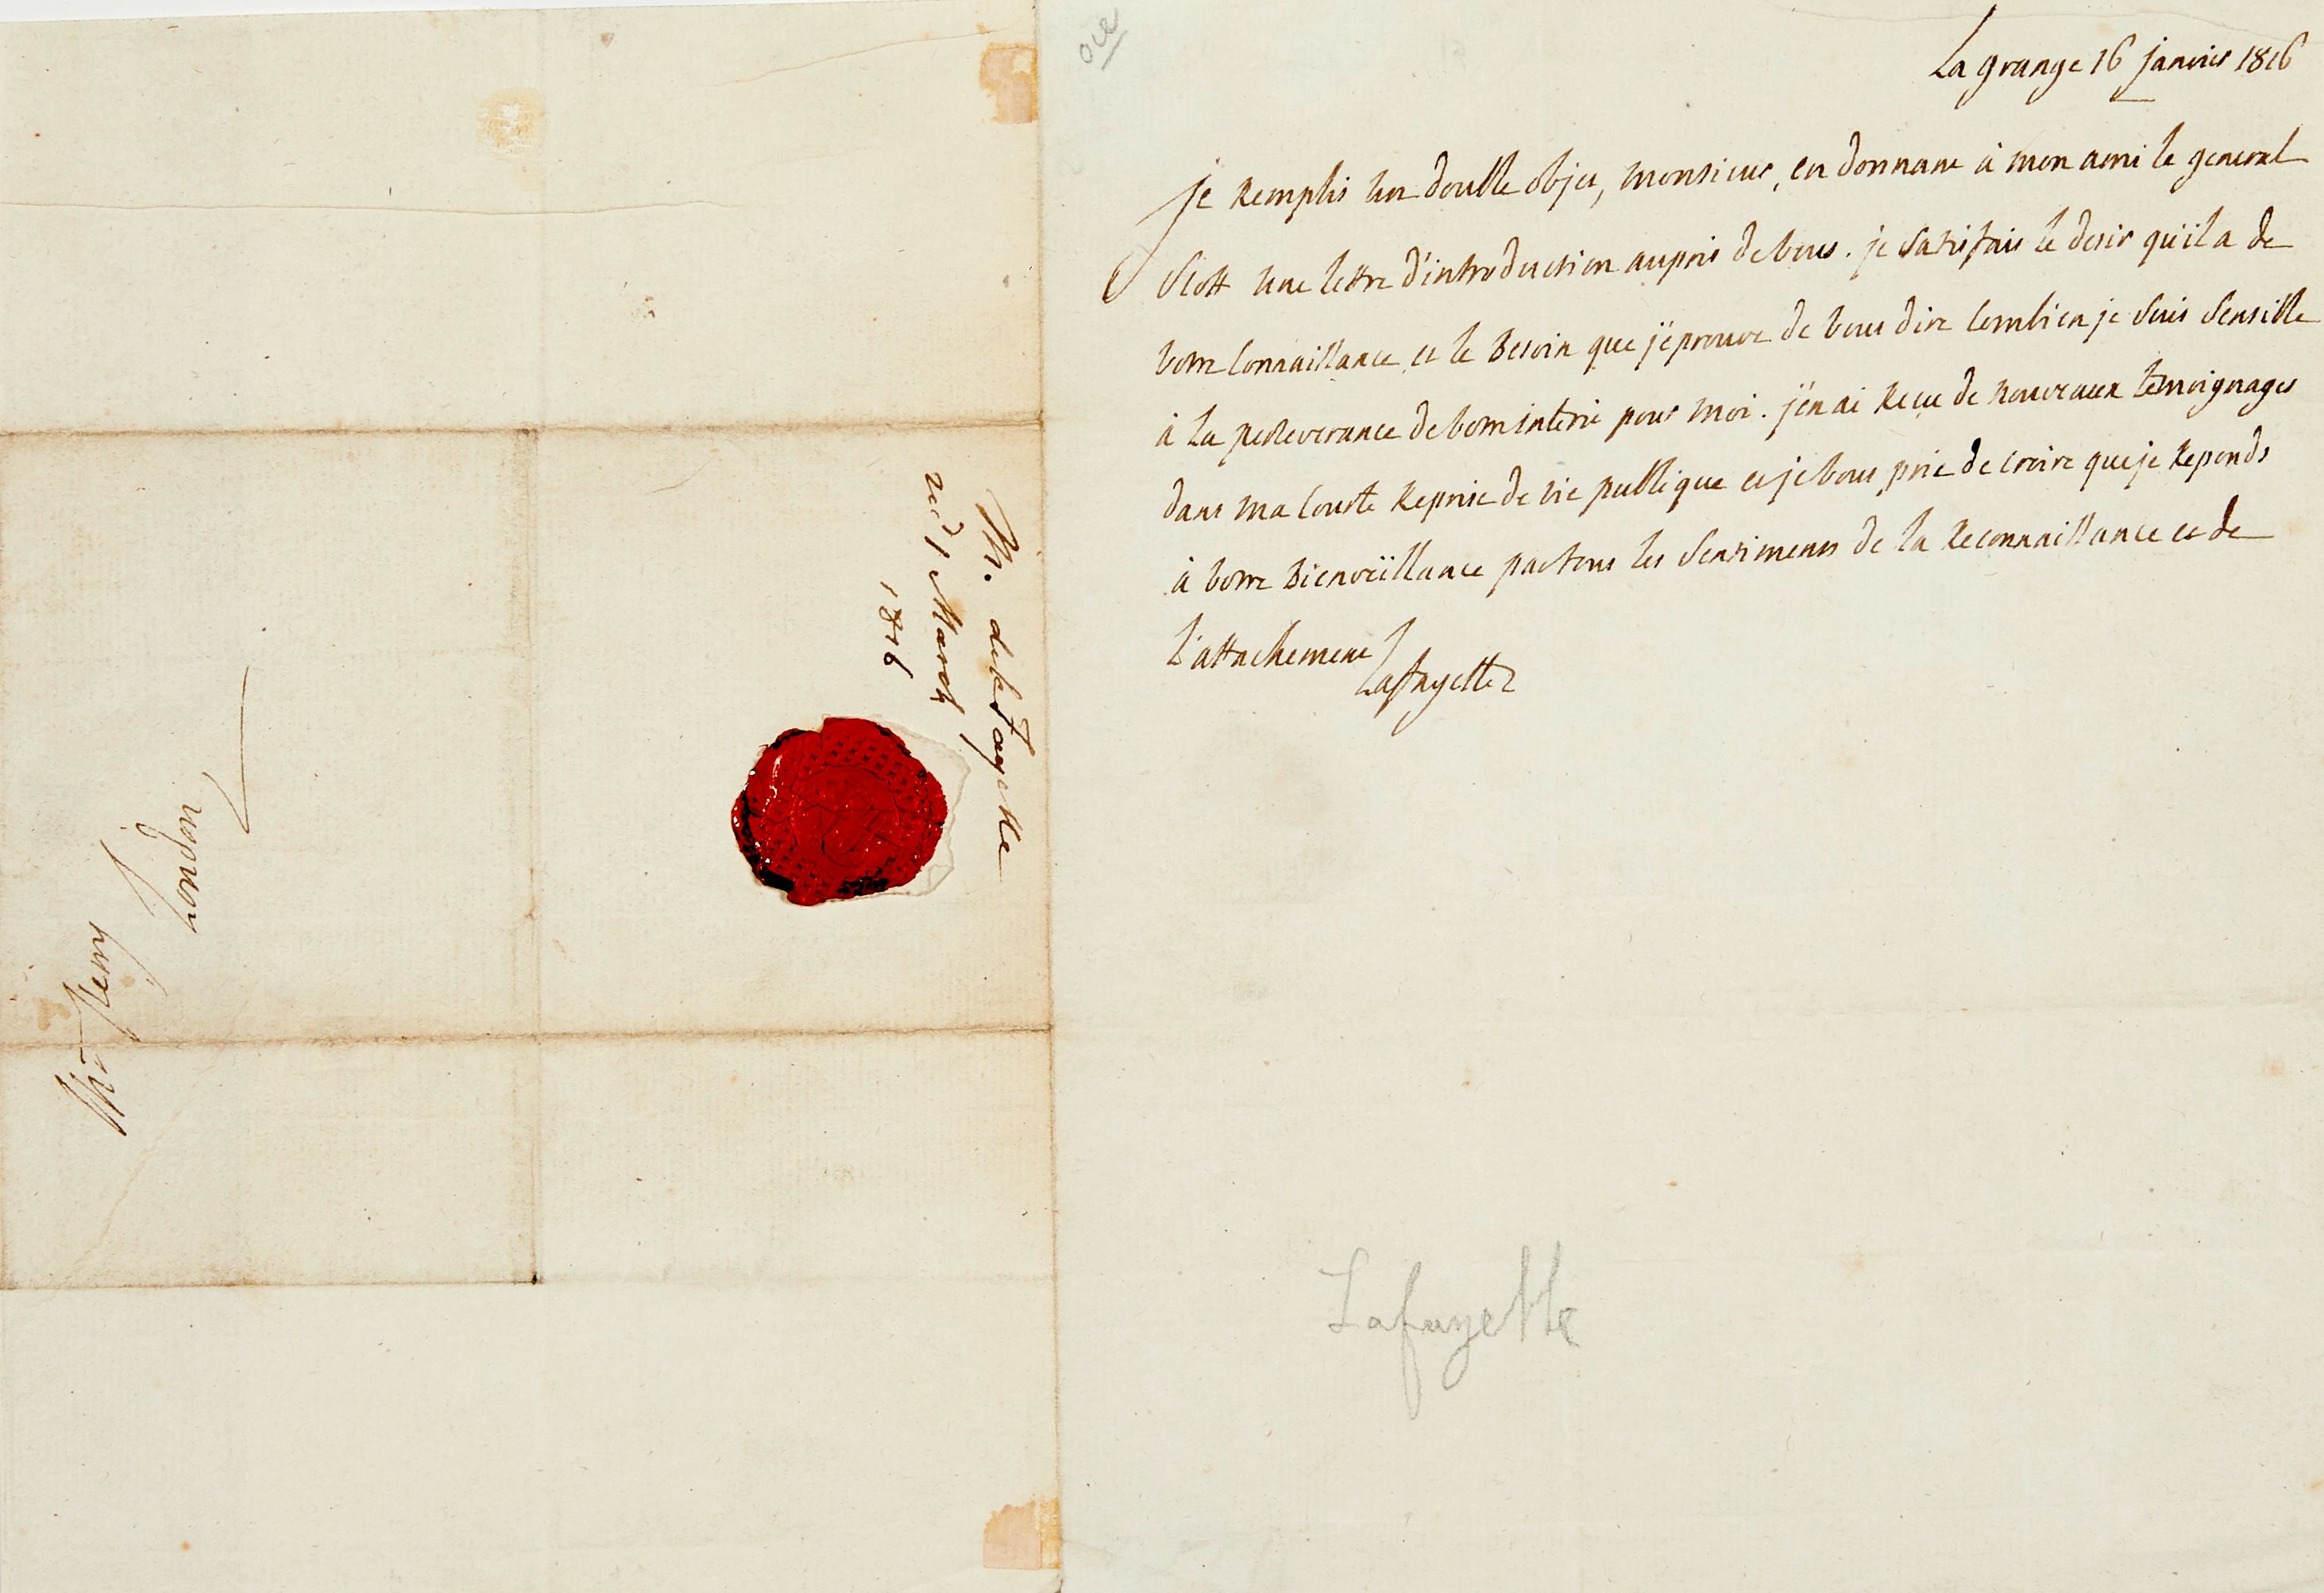 La grange 16 janvier 1816
je remplis un double objet, monsieur, en donnant à mon ami le general
Scott une lettre d'introduction auprès de vous. je satisfais le desir qu'il a de
votre connaissance et le besoin que j'éprouve de vous dire combien je suis sensible
à la perseverance de votre interêt pour moi. j'en ai reçu de nouveaux temoignages
dans ma courte reprise de vie publique et je vous prie de croire que je reponds
à votre bienveillance par tous les sentimens de la reconnaissance et de
l'attachement
Lafayette
Lafayette
M. de la Fayette
rec'd 1 March
1816
London